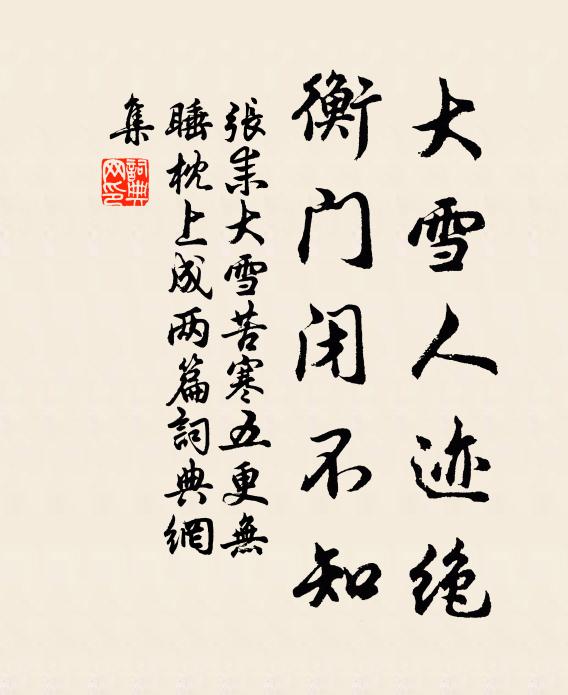 大雪人迹绝
衡门闭不知
張耒大雪苦寒五更無
睡枕上成两篇詞典網
集
詞典網印